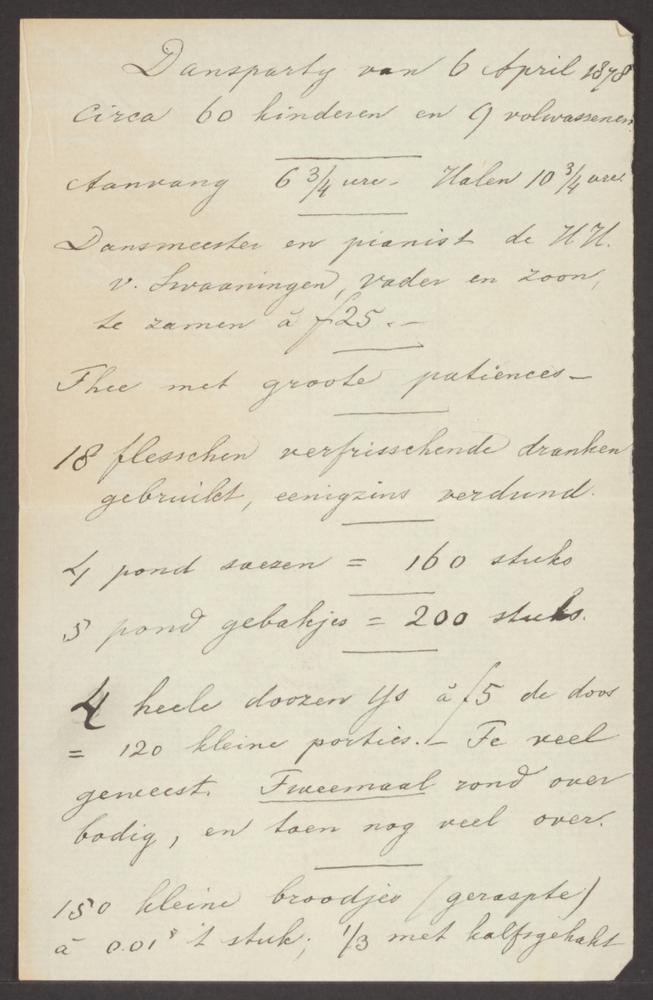 Dansparty van 6 April 1878
circa 60 kinderen en 9 volwassenen
Aanvang 6 3/4 ure. Halen 10 3/4 ure.
Dansmeester en pianist de HH.
v. Swaaningen, vader en zoon,
te zamen à f25.-
Thee met groote patiences -
18 flesschen verfrisschende dranken
gebruikt, eenigzins verdund.
4 pond soezen = 160 stuks
5 pond gebakjes = 200 stuks.
4 heele doozen ys à f5 de doos
= 120 kleine porties. - Te veel
geweest. Tweemaal rond over
bodig, en toen nog veel over.
150 kleine broodjes (geraspte)
à 0.01⁵ 't stuk; 1/3 met kalfsgehakt